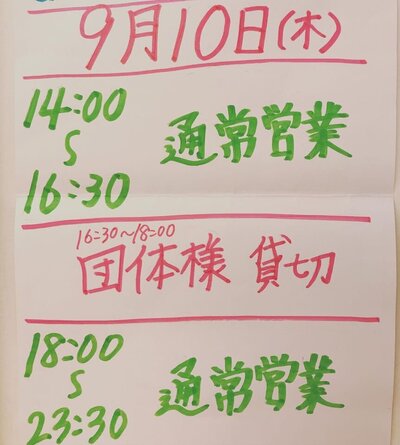 9月10日(木)
14:00
S
16:30
通常営業
16:30～18:00
団体様 貸切
18:00
S
23:30
通常営業